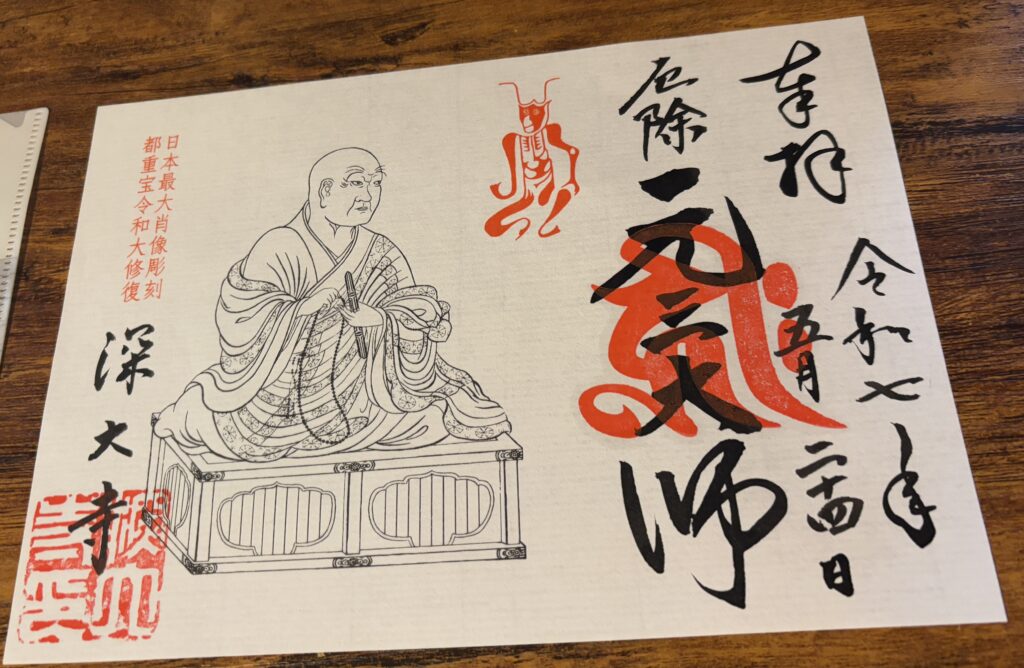 奉拝
令和七年
五月二十四日
厄除
元三大師
日本最大肖像彫刻
都重宝令和大修復
深大寺